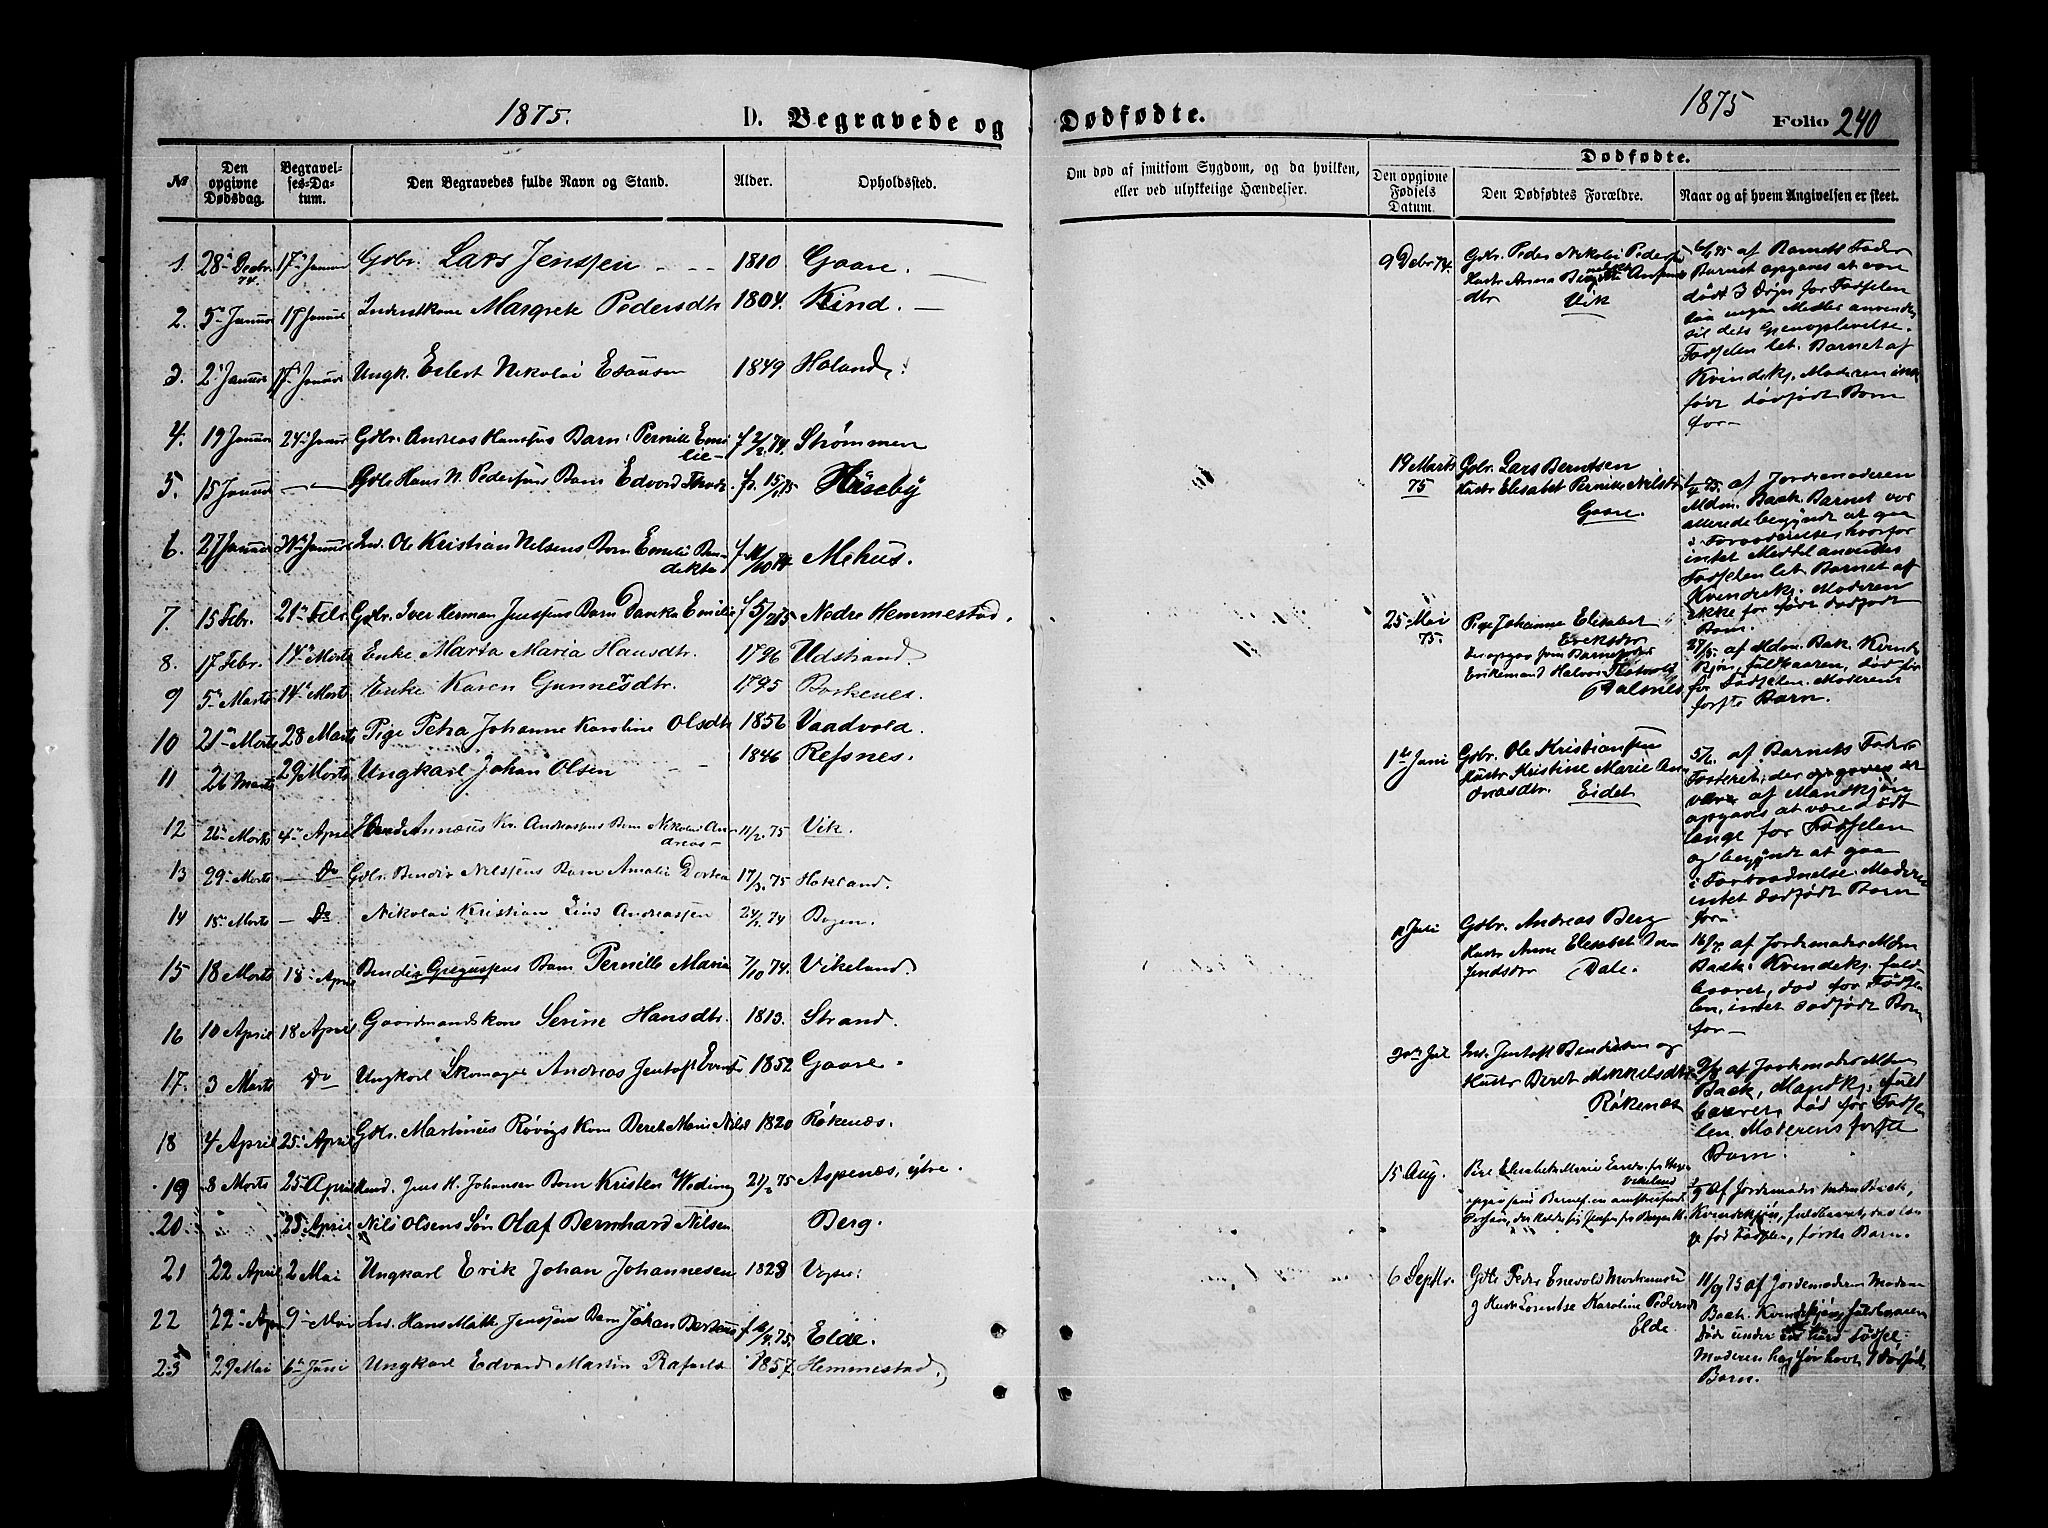 1875.
D. Begravede og
No
Den opgivne Dødsdag.
Begravelses-Datum.
Den Begravedes fulde Navn og Stand.
Alder.
Opholdssted.
1. 28 Decbr. 74. 17 Januar Gdbr. Lars Jenssen 1810 Gaare.
2. 5 Januar 17 Januar Inderstkone Margrete Pedersdtr 1804. Kind.
3. 2 Januar 17 Januar Ungk. Eilert Nikolai Esausen 1849 Holand.
4. 19 Januar 24 Januar Gdbr. Andreas Hansens Barn: Pernille Emilie f 2/2 74 Strømmen
5. 15 Januar Gdbr Hans N. Pedersens Barn Edvard f. 15/1 75 Huseby
6. 27 Januar 31 Januar Ind. Ole Kristian Nilsens Barn Emelie Bendikta f. 11/10 74 Mehus.
7. 15 Febr. 21 Febr. Gdbr. Iver Herman Jenssens Barn Danka Emilie f 5/2 75 Nedre Hemmestad.
8. 17 Febr. 14 Marts Enke Marta Maria Hansdtr. 1796 Udstrand.
9 5 Marts 14 Marts Enke Karen Gunnersdtr. 1795 Borkenes.
10 21 Marts 28 Marts Pige Petra Johanne Karoline Olsdtr 1856 Vaadvold.
11 26 Marts 29 Marts Ungkarl Johan Olsen 1846 Refsnes.
12 26 Marts 4 April Annæus Kr. Andreassens Barn Nikolai Andreas 11/2 75 Vik.
13 29 Marts Do Gdbr. Bendix Nilssens Barn Amalie Dortea 17/3 75 Hokland.
14 18 Marts Do Nikolai Kristian Andreassen 24/2 74 Bogen.
15 18 Marts 18 April Bendix Gregussens Barn Pernille Maria 7/10 74. Vikeland.
16 10 April 18 April Gaardmandskone Serine Hansdtr. 1813. Strand.
17. 3 Marts Do Ungkarl Skomager Andreas Jentoft 1852 Gaare.
18 4 April 25 April Gdbr. Martinus Røvigs Kone Beret Marie Nilsd 1820 Røkenæs.
19 8 Marts 25 April Jens H. Johansen Barn Kristen Weding 21/2 75 Aspenæs, ytre.
20. 25 April Nils Olsens Søn Olaf Bernhard Nilsen Berg.
21 22 April 2 Mai Ungkarl Erik Johan Johannesen 1828
22 22 Apr 9 Mai Ind. Hans Math. Jenssens Barn Johan f. 75. Elde.
23 29 Mai 6 Juni Ungkarl Edvard Martin 1857. Hemmestad.
Dødfødte.
1875
Folio 240
Om død af smitsom Sygdom, og da hvilken, eller ved ulykkelige Hændelser.
Dødfødte.
Den opgivne Fødsels Datum.
Den Dødfødtes Forældre.
Naar og af hvem Angivelsen er skeet.
9 Debr 74.
Gdbr. Peder Nikolai Pedersen
Hustr Anna
dtr Vik
af Barnets Fader
Barnet opgaves at være
dødt 3 Døgn før Fødselen
saa ingen Midler anvendes
til dets Gjenoplivelse.
Fødselen let. Barnet af
Kvindekj. Moderen ikke
født dødfødt Barn
før
19 Marts 75
Gdbr. Lars Berntsen
Hustr Elisabet Pernille Nilsdtr
Gaare.
af Jordemoderen
Mdm. Baak. Barnet var
allerede begyndt at gaa
i Forraadnelse hvorfor
intet Middel anvendes
Fødselen let Barnet af
Kvindekj. Moderen
ikke før født dødfødt
Barn.
25 Mai 75.
Pige Johanne Elisabet
Eriksdtr
der opgav som Barnefader
Enkemand Halvor
Dalsnes
27/5 af Mdm. Bak. Kvindekjøn, fuldbaaren, død før
Fødselen. Moderens
første Barn.
1 Juni
Gdbr. Ole Kristiansen
Hustr Kristine Marie Andreasdtr. Eidet
5/7. af Barnets Fader
Fosteret, der opgaves at
være af Mandkjøn
opgaves at være dødt
længe før Fødselen
og begyndt at gaa
i Forraadnelse. Moderen
intet dødfødt Barn
før
Juli
Gdbr. Andreas Berg
Hustr Anne Elisabet
Jensdtr Dale.
16/7. af Jordemoder Mdm
Baak. Kvindekj. fuldbaaret, død før Fødselen, intet dødfødt Barn
før
Jul
Ind. Jentoft Bendixsen og
Hustr Beret Mikkelsdtr
Røkenæs
af Jordemoder Mdm
Baak, Mandkj. fuldbaaren, død før Fødselen. Moderens første
Barn.
15 Aug.
Pige Elisabeth Marie
Vikeland
opgav som Barnef. en omstreifende
Person, der kaldte sig Jensen fra Bergen
af Jordemoder Mdm Baak,
Kvindekjøn, fuldbaaret, død længe før Fødselen, første Barn.
6 Septbr.
Gdbr Peder Enevold
og Hustr Lorentse Karoline Pedersd
Elde.
11/9 75 af Jordemoderen Madam
Baak. Kvindekjøn, fuldbaaren
Døde under Fødsel.
Moderen har før havt 1 Dødfødt
Barn.